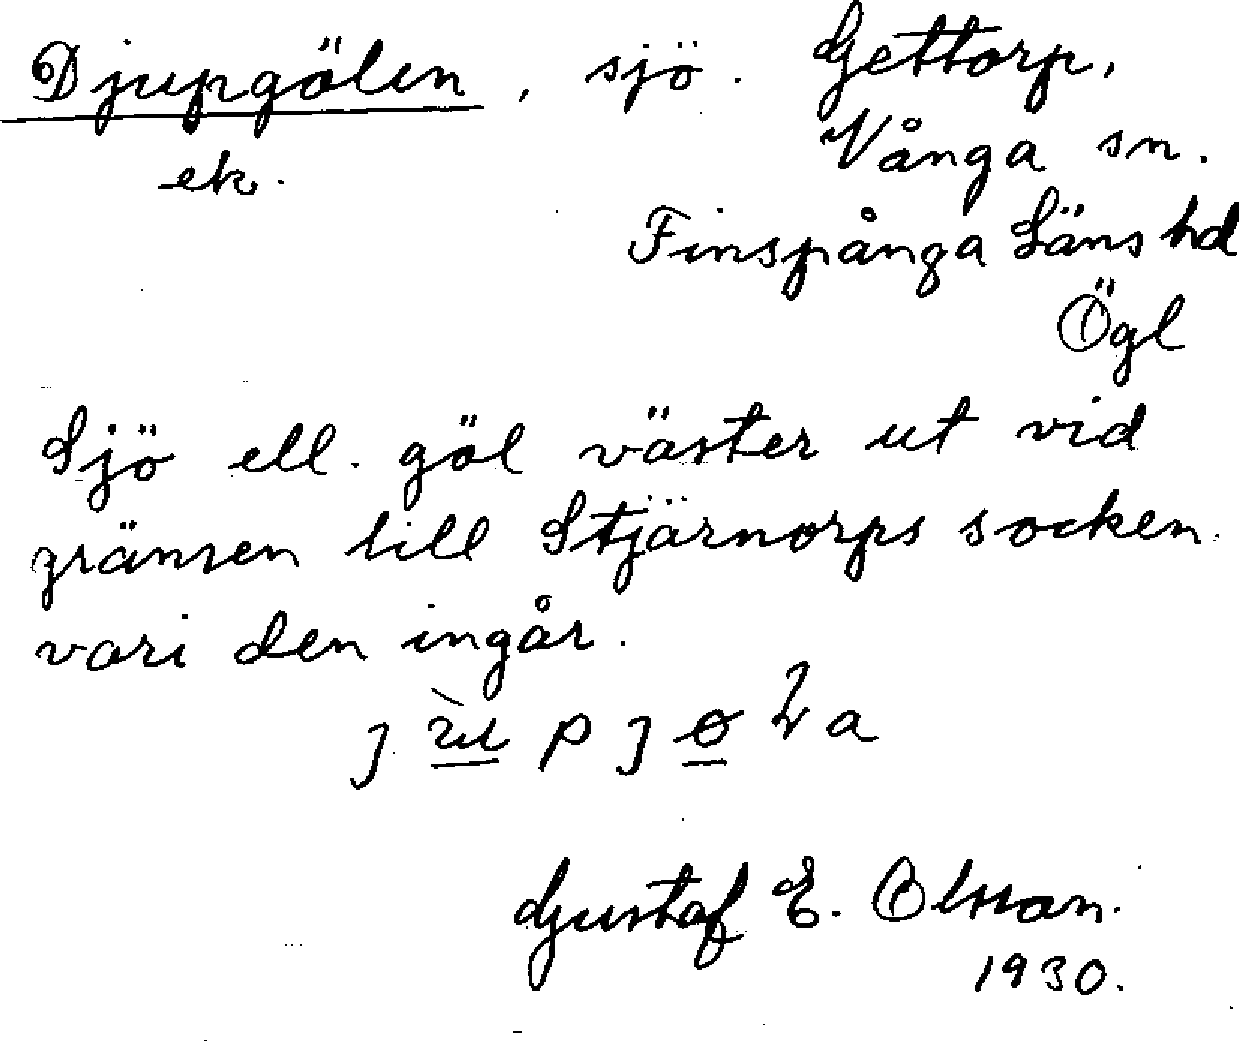 Djupgölen, sjö. Gettorp,
ek. Vånga sn.
Finspånga Läns hd
Ögl
Sjö ell. göl väster ut vid
gränsen till Stjärnorps socken.
vari den ingår.
Gustaf E. Olsson.
1930.